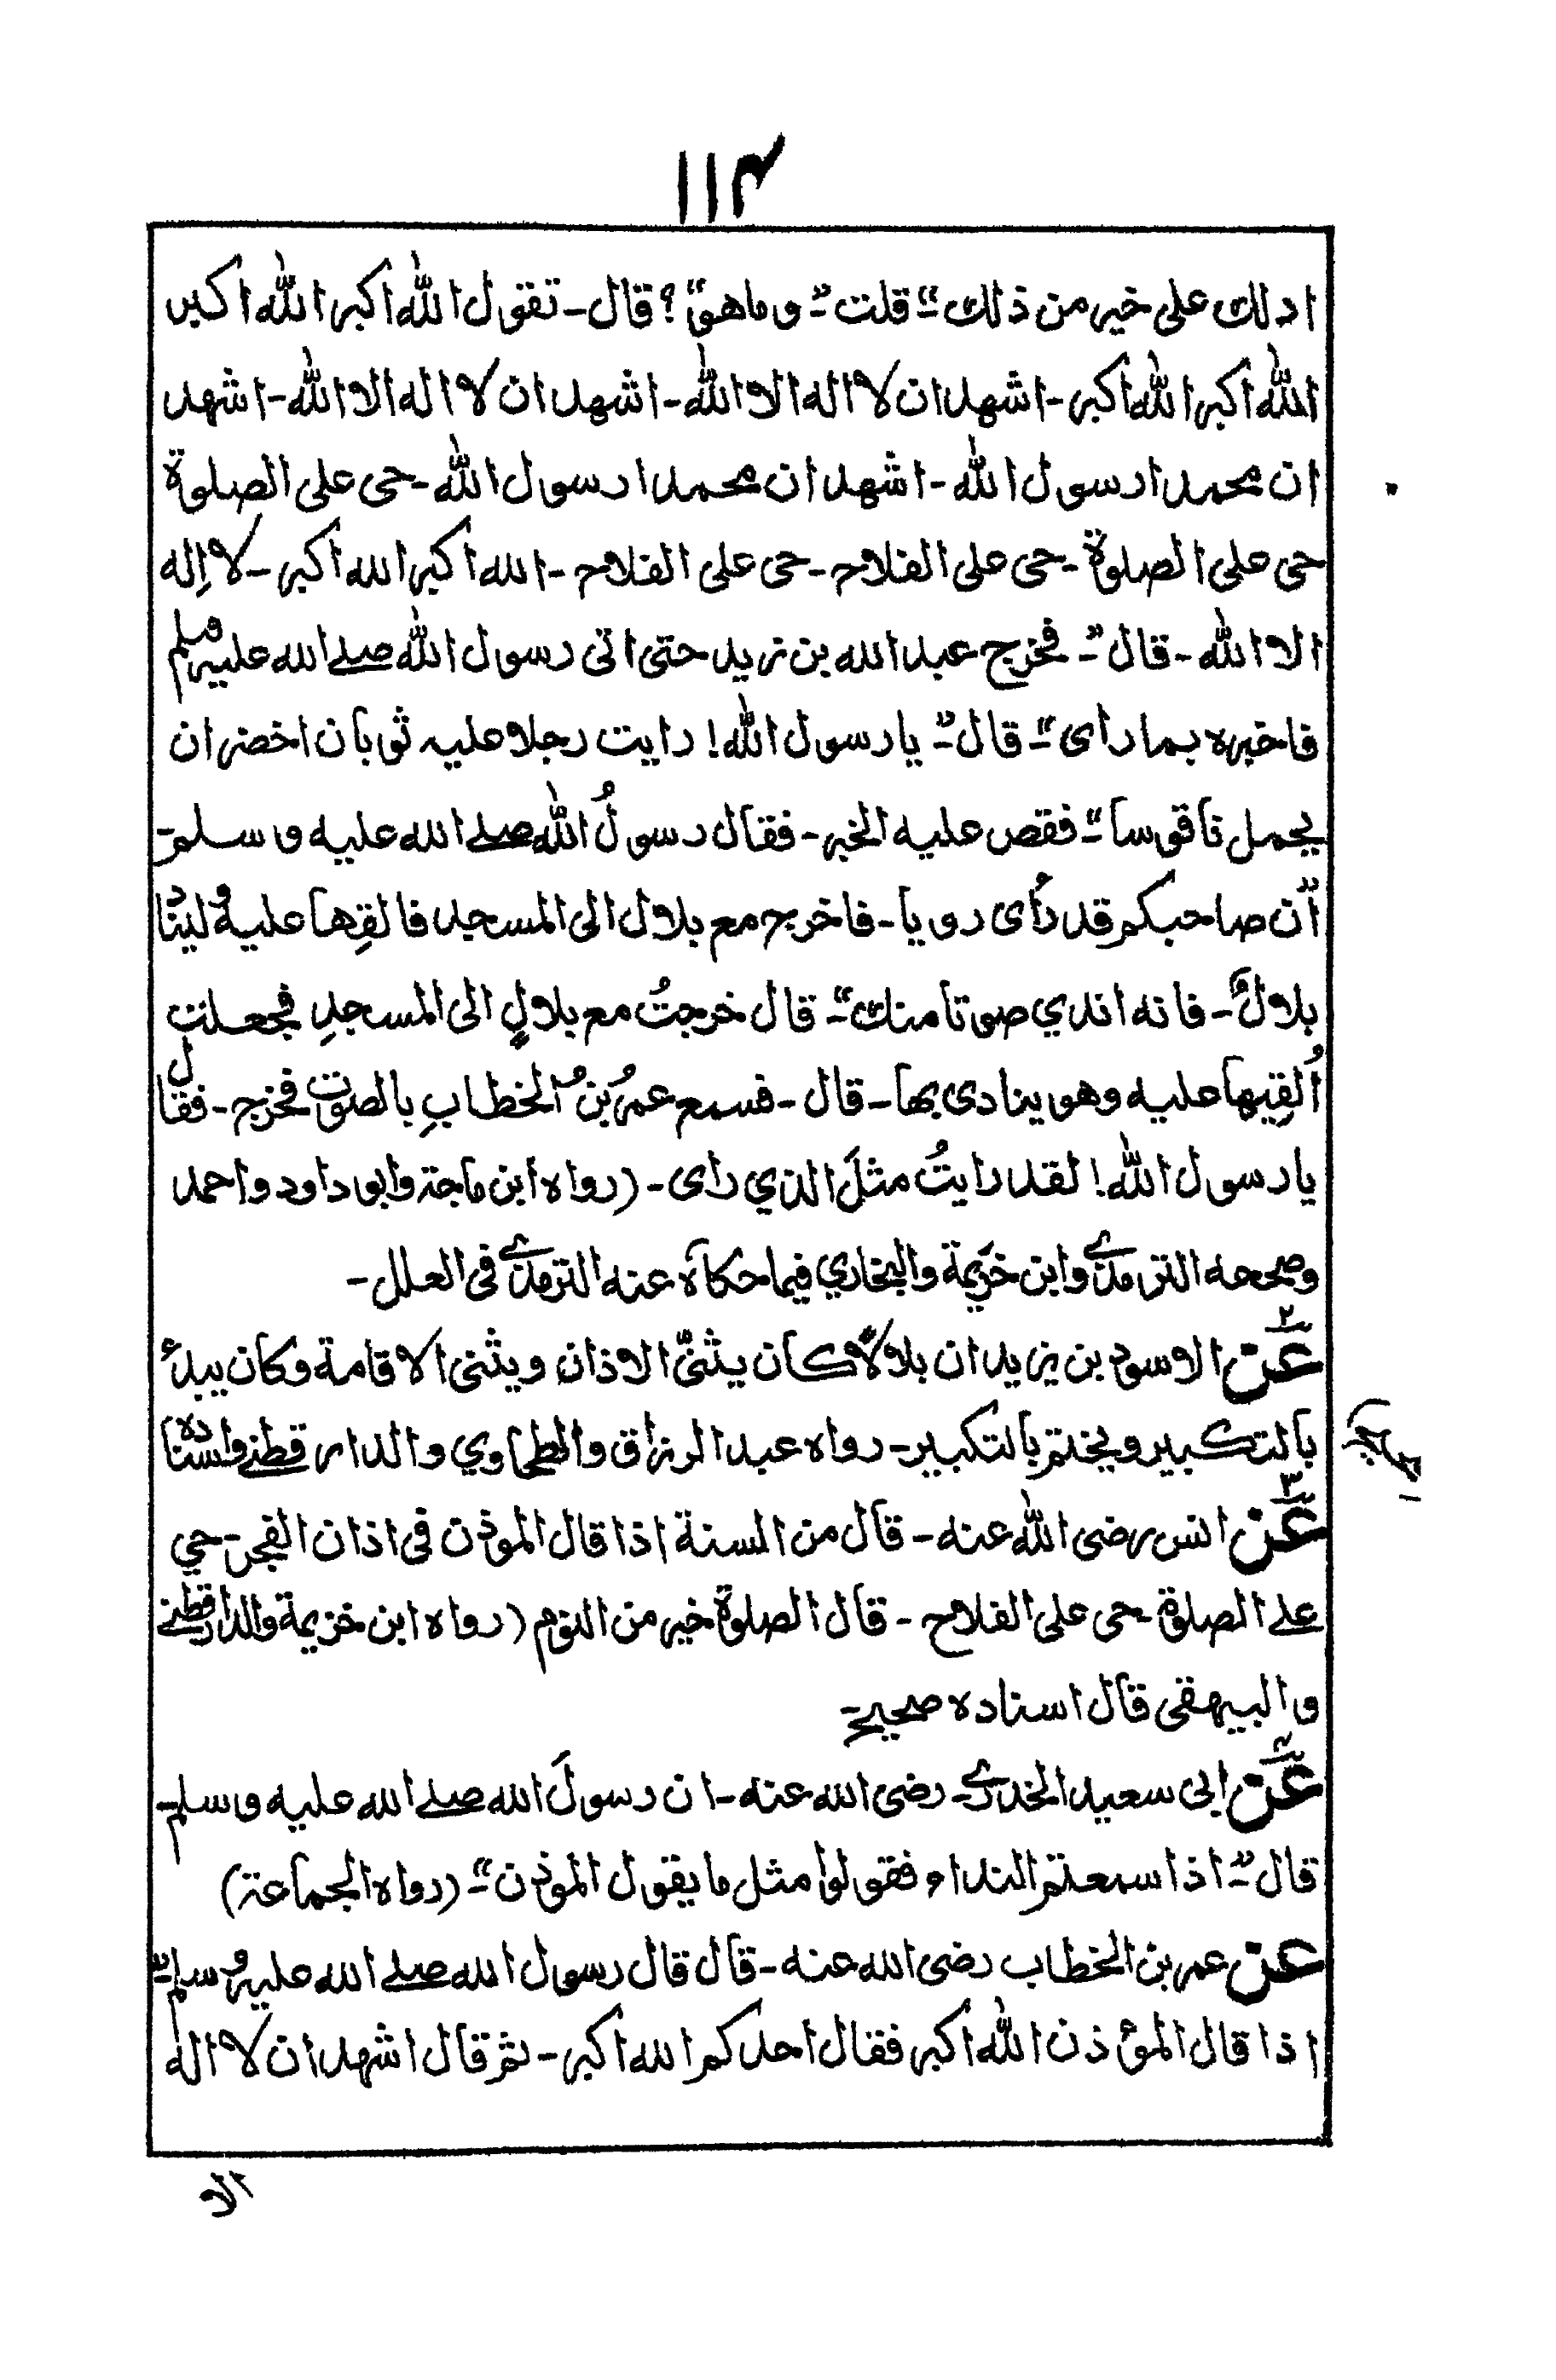 ١١٤
ادلك على خير من ذلك"۔ قلت۔" وما هو"؟ قال۔ تقول الله اكبر الله اكبر
الله اكبر الله اكبر۔ اشهد ان لا اله الا الله۔ اشهد ان لا اله الا الله۔ اشهد
ان محمدا رسول الله۔ اشهد ان محمدا رسول الله۔ حى على الصلوة
حى على الصلوة۔ حى على الفلاح۔ حى على الفلاح۔ الله اكبر الله اكبر۔ لا اِله
الا الله۔ قال"۔ فخرج عبد الله بن زيد حتى اتى رسول الله صلے الله عليه وسلم
فاخبره بما راى"۔ قال"۔ يا رسول الله! رايت رجلا عليه ثوبان اخضران
يحمل ناقوسا"۔ فقص عليه الخبر۔ فقال رسولُ الله صلے الله عليه وسلم۔
"ان صاحبكم قد رأى رويا۔ فاخرج مع بلال الى المسجد فالقِها عليه ولينادِ
بلالٌ۔ فانه اندي صوتا منك"۔ قال خرجتُ مع بلالٍ الى المسجدِ فجعلت
اُلقِيها عليه وهو ينادى بها۔ قال۔ فسمع عمرُ بنُ الخطابِ بالصوت فخرج۔ فقال
يا رسول الله! لقد رايتُ مثلَ الذي راى۔ (رواه ابن ماجة وابو داود واحمد
وصححه الترمذے وابن خزيمة والبخاري فيما حكاه عنه الترمذے فى العلل۔
٢ عن الاسود بن يزيد ان بلالاً كان يثنّى الاذان ويثنى الاقامة وكان يبدء
بالتكبير ويختم بالتكبير۔ رواه عبد الرزاق والطحاوي والدار قطنے واسناده
صحيح۔
٣ عن انس رضى الله عنه۔ قال من السنة اذا قال الموذن فى اذان الفجر۔ حي
علے الصلوة۔ حى على الفلاح۔ قال الصلوة خير من النوم (رواه ابن خزيمة والدارقطنے
والبيهقى قال اسناده صحيح۔
٤ عن ابى سعيد الخدرے رضى الله عنه۔ ان رسولَ الله صلے الله عليه وسلم۔
قال"۔ اذا سمعتم النداء فقولوا مثل ما يقول الموذن"۔ (رواه الجماعة)
عن عمر بن الخطاب رضى الله عنه۔ قال قال رسول الله صلے الله عليه وسلم"۔
اذا قال المؤذن الله اكبر فقال احدكم الله اكبر۔ ثم قال اشهد ان لا اله
الا